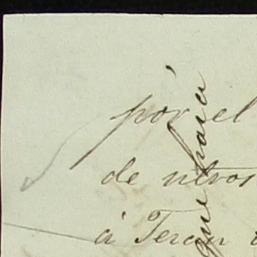 por el
de ntros
á Teran
que para